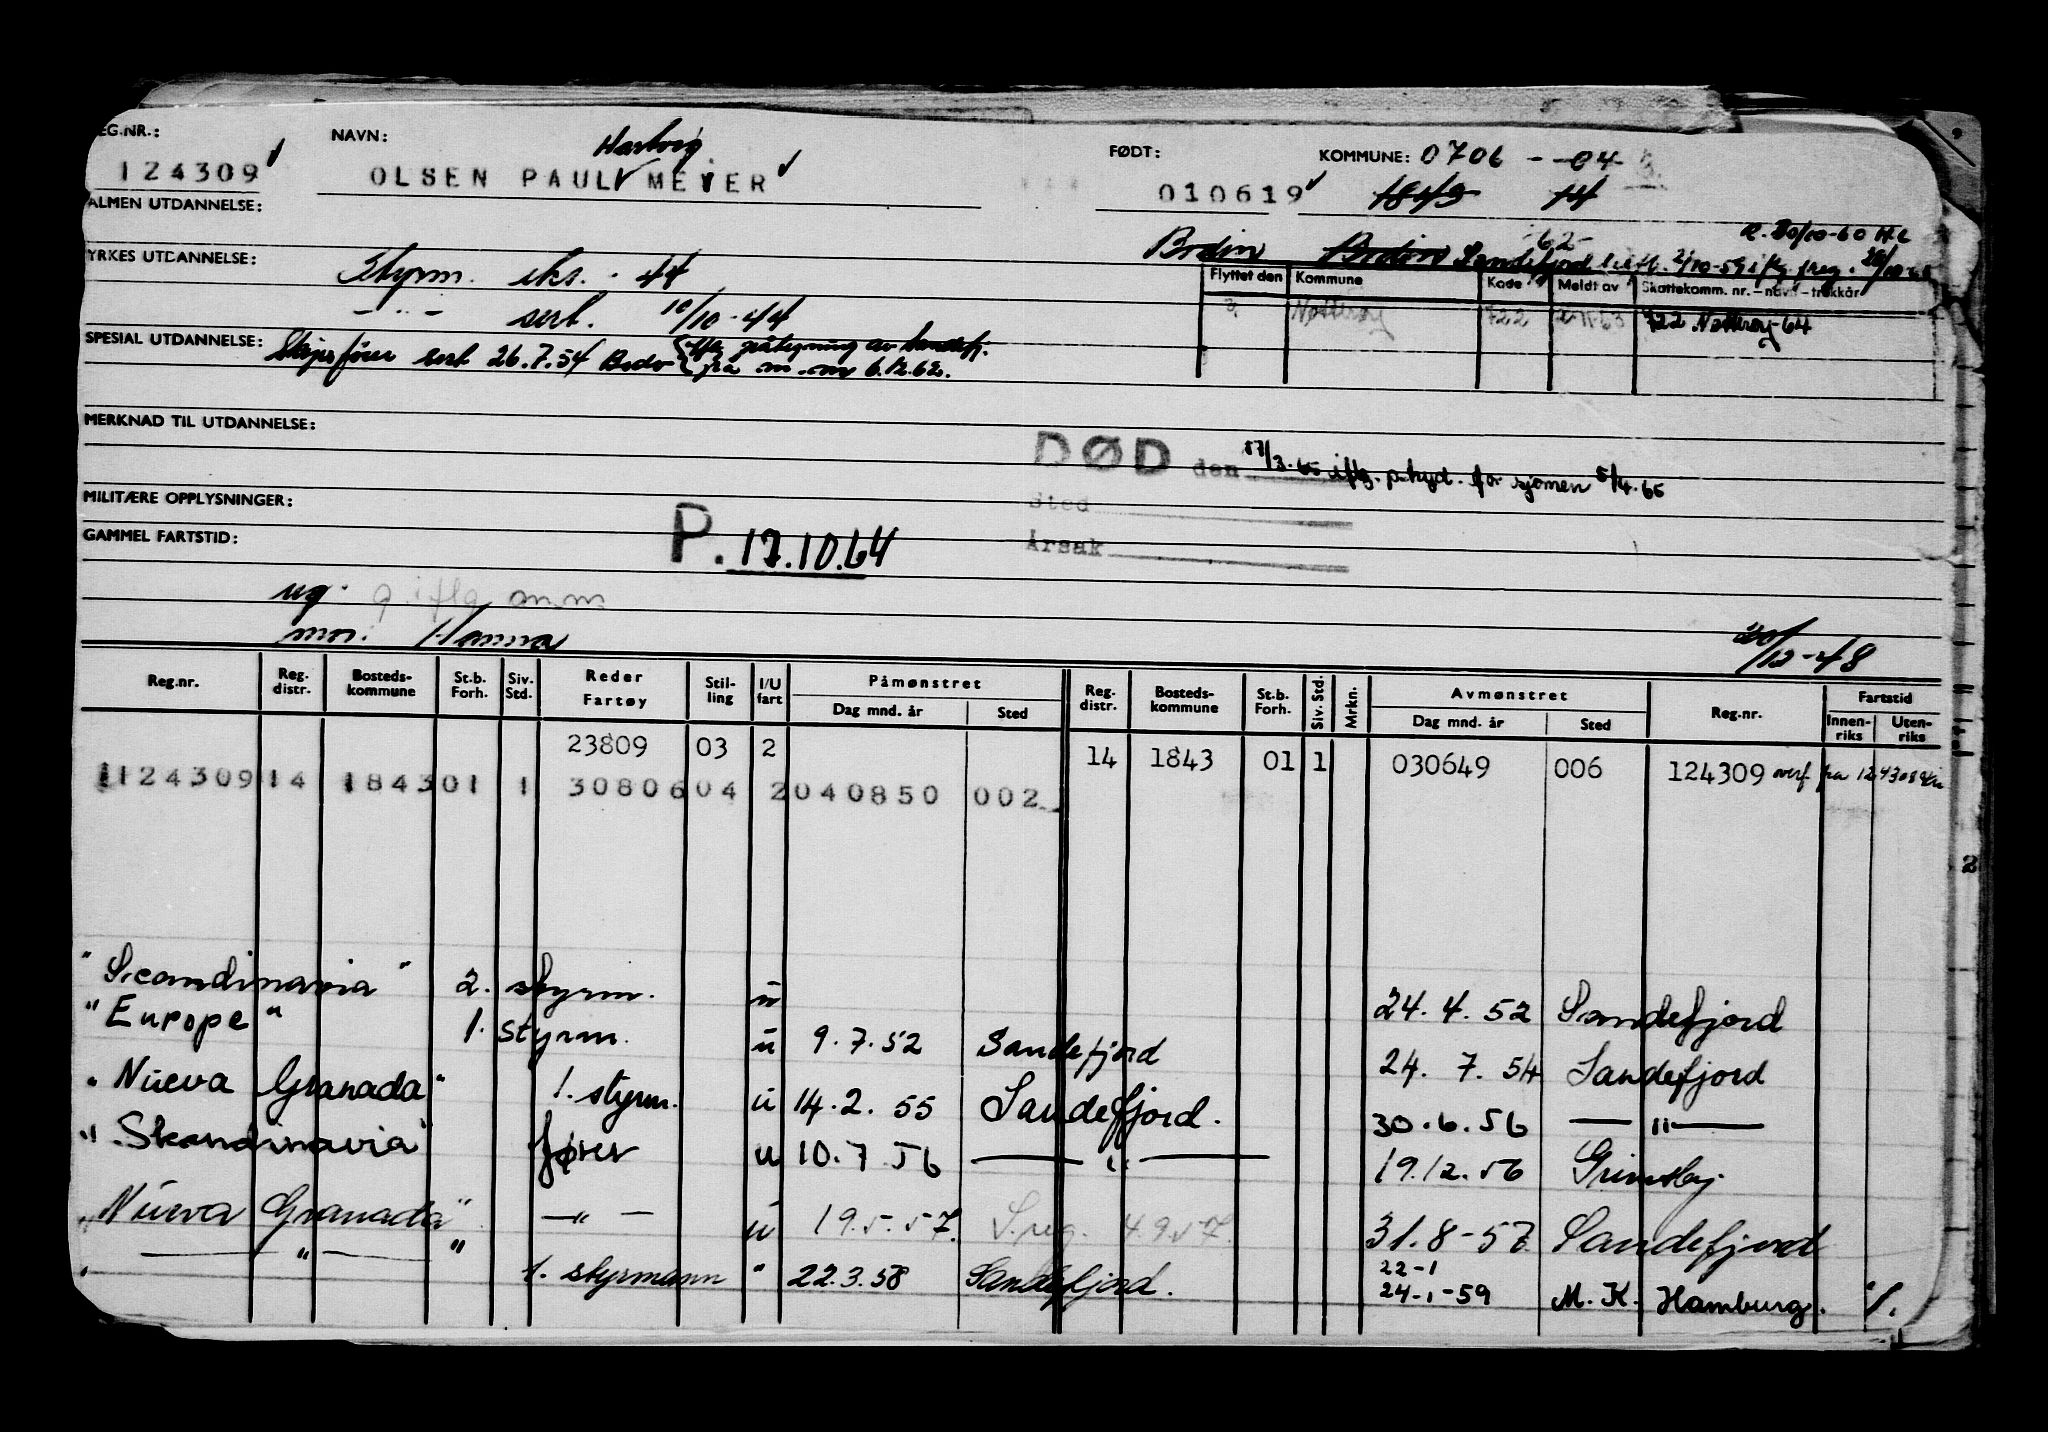 EG.NR.: NAVN: Hartvig FØDT: KOMMUNE: 0706 - - 04
124309 OLSEN PAUL MEYER 010619 1843 14
ALMEN UTDANNELSE:
Bodin Bodin Sandefjord -62-
YRKES UTDANNELSE: Styrm. eks. - 44
Flyttet den Kommune Kode Meldt av Skattekomm. nr. - navn - trekkår
— " — sert. 10/10-44
Nøtterøy 722 722 Nøtterøy-64
SPESIAL UTDANNELSE: Skipsfører sert 26.7.54 Bodø
fra m. m 6.12.62.
MERKNAD TIL UTDANNELSE:
DØD den 17/3-65 iflg. p.tryd. for sjømen 5/4.65
MILITÆRE OPPLYSNINGER:
sted
GAMMEL FARTSTID:
P. 17.10.64
Årsak
ug. g. iflg m.m
mor: Hanna
20/12-48
Reg.nr. Reg. distr. Bosteds-kommune St.b. Forh. Siv. Std. Reder Fartøy Stil-ling I/U fart Påmønstret Dag mnd. år Sted Reg. distr. Bosteds-kommune St.b. Forh. Siv. Std. Mrkn. Avmønstret Dag mnd. år Sted Reg.nr. Fartstid Innen-riks Uten-riks
23809 03 2 14 1843 01 1 030649 006 124309 overf fra
1124309 14 1843 01 1 30806 04 2 040850 002
"Scandinavia" 2. styrm. u 24.4.52 Sandefjord
"Europe" 1. styrm. u 9.7.52 Sandefjord 24.7.54 Sandefjord
"Nueva Granada" 1. styrm. u 14.2.55 Sandefjord. 30.6.56 — " —
"Skandinavia" fører u 10.7.56 — " — 19.12.56 Grimsby
"Nueva Granada" — " — u 19.5.57. S.reg. 4.9.57. 31.8-57 Sandefjord
" — " — " 1. styrmann " 22.3.58 Sandefjord. 22-1
24-1-59 M. K. Hamburg. "/.
2